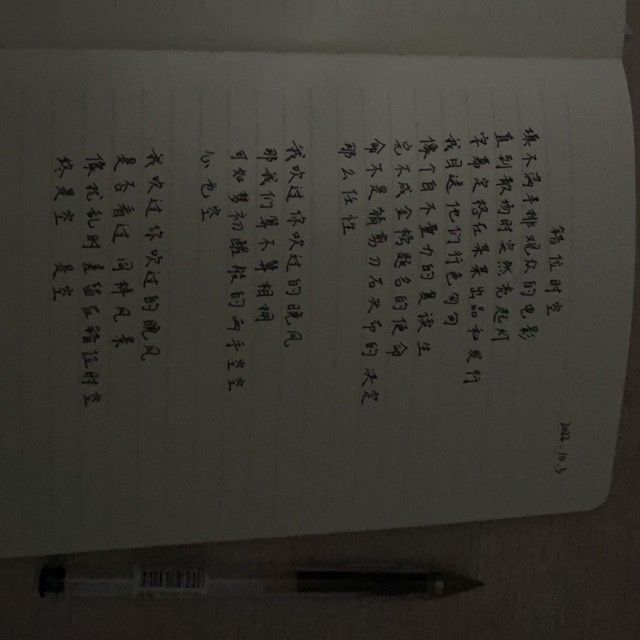 错位时空
2022.10.3
填不满半排观众的电影
直到散场时突然亮起灯
字幕定格在某某出品和发行
我目送他们行色匆匆
像个自不量力的复读生
完不成金榜题名的使命
命不是猜剪刀石头布的决定
那么任性
我吹过你吹过的晚风
那我们算不算相拥
可如梦初醒般的两手空空
心也空
我吹过你吹过的晚风
是否看过同样风景
像扰乱时差留在错位时空
终是空 是空